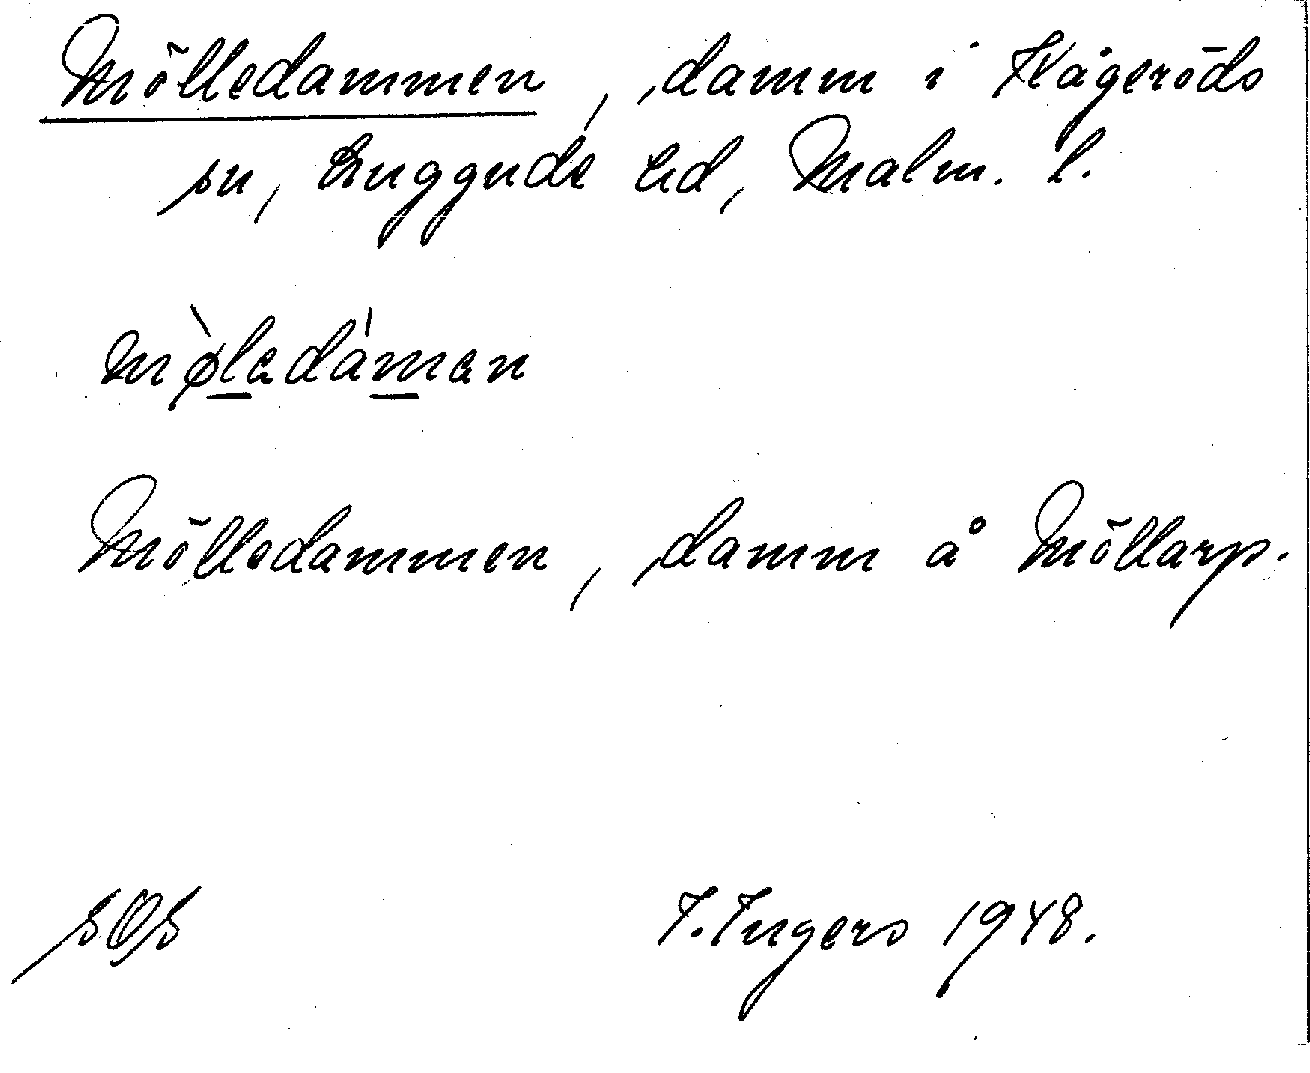 Mölledammen, damm i Kågeröds
sn, Luggude hd, Malm. l.
mø̀ledámen
Mölledammen, damm å Möllarp.
SOS I. Ingers 1948.